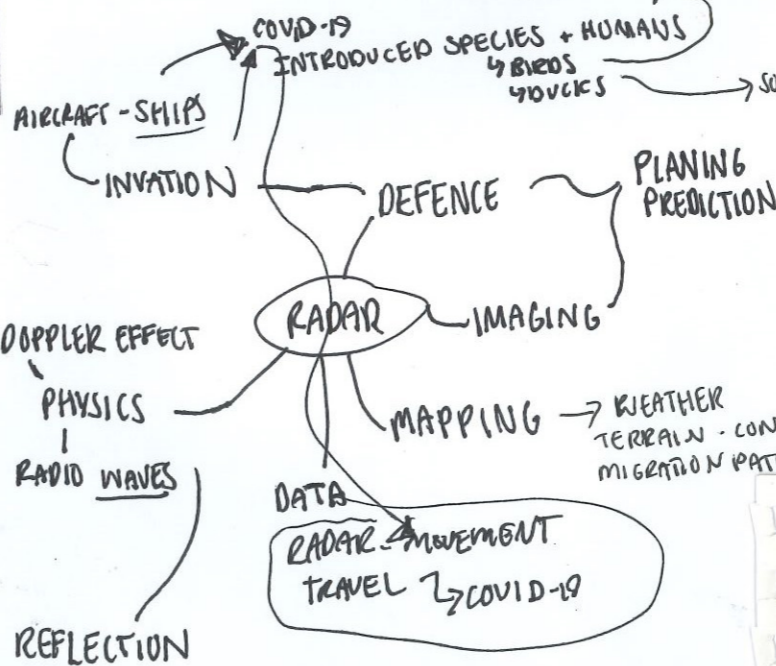 COVID-19
INTRODUCED SPECIES + HUMANS
↳ BIRDS
↳ DUCKS
AIRCRAFT - SHIPS
INVATION
DEFENCE
PLANING
PREDICTION
RADAR
IMAGING
DOPPLER EFFECT
PHYSICS
RADIO WAVES
MAPPING → WEATHER
TERRAIN - CON
MIGRATION PAT
DATA
RADAR - MOVEMENT
TRAVEL ↳ COVID-19
REFLECTION